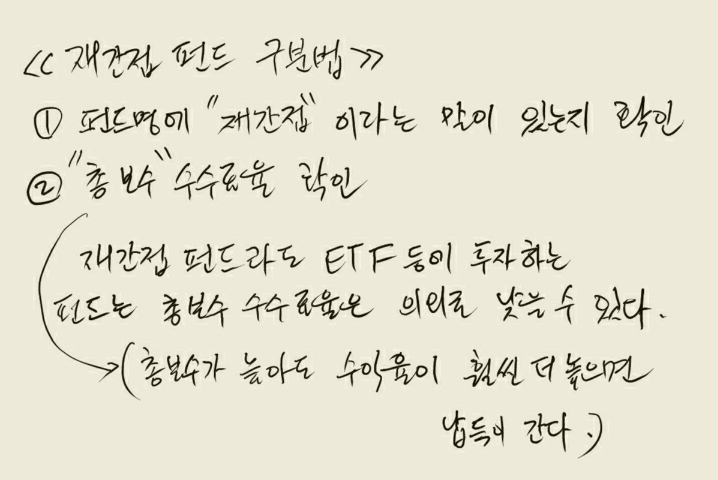 << 재간접 펀드 구분법 >>
① 펀드명에 "재간접" 이라는 말이 있는지 확인
② "총보수" 수수료율 확인
재간접 펀드라도 ETF 등에 투자하는
펀드는 총보수 수수료율은 의외로 낮을 수 있다.
(총보수가 높아도 수익율이 훨씬 더 높으면
납득이 간다.)